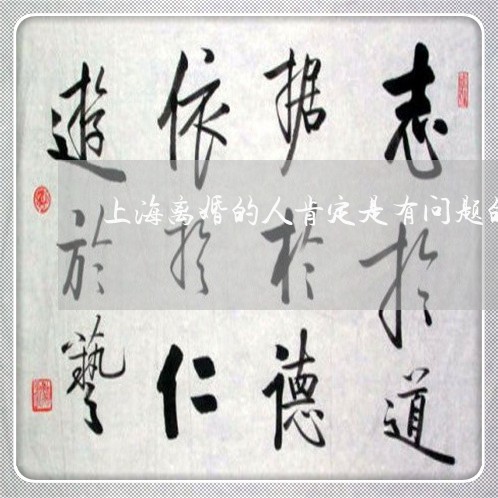 志於道
据於德
依於仁
遊於藝
上海离婚的人肯定是有问题的